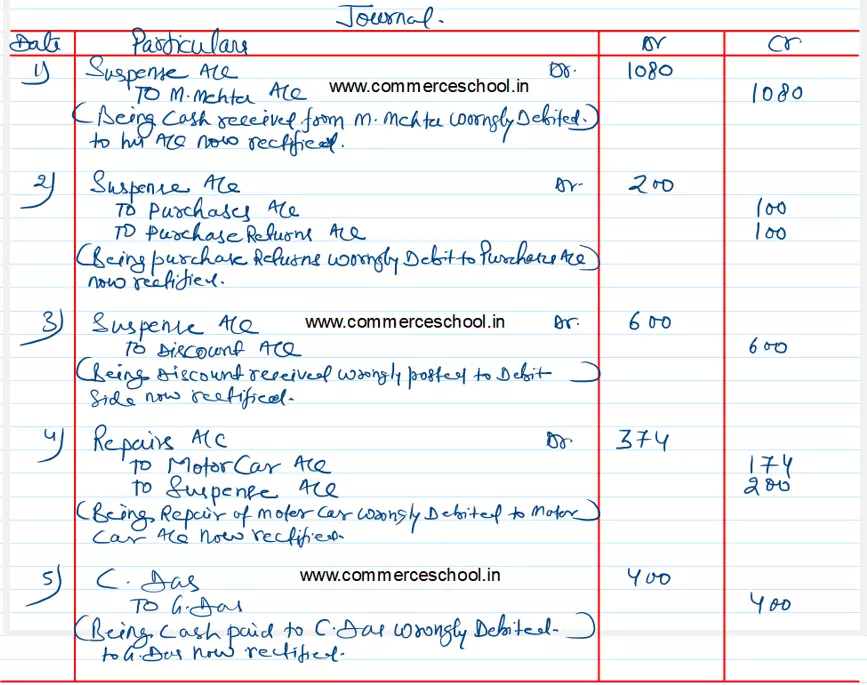 Journal.
Date Particulars Dr Cr
1) Suspense A/c Dr. 1080
To M. Mehta A/c www.commerceschool.in 1080
(Being Cash received from M. Mehta worngly Debited.)
to his A/c now rectified.
2) Suspense A/c Dr. 200
To Purchases A/c 100
To Purchase Returns A/c 100
(Being purchase Returns worngly Debit to Purchase A/c)
now rectified.
3) Suspense A/c www.commerceschool.in Dr. 600
To Discount A/c 600
(Being Discount received wrongly posted to Debit )
Side now rectified.
4) Repairs A/C Dr. 374
To Motor Car A/c 174
To Suspense A/c 200
(Being Repair of motor Car wrongly Debited to Motor )
Car A/c now rectified.
5) C. Das www.commerceschool.in 400
To G. Das 400
(Being Cash paid to C. Das wrongly Debited. )
to G. Das now rectified.